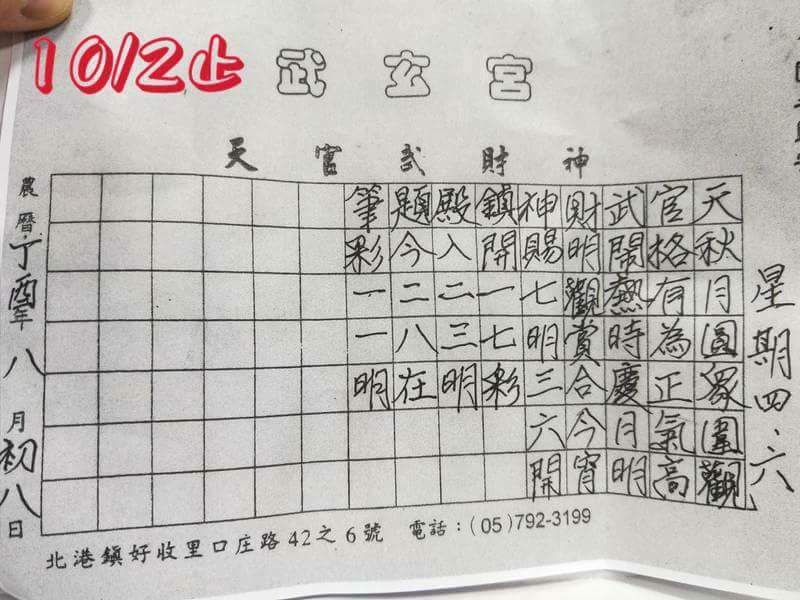 10/2止
武玄宮
天官武財神
星期四、六
天秋月圓眾圍觀
官格有為正氣高
武鬧熱時慶月明
財明觀賞合今宵
神賜七明三六開
鎮開一七彩
殿入二三明
題今二八在
筆彩一一明
農曆丁酉年八月初八日
北港鎮好收里口庄路42之6號 電話：(05)792-3199